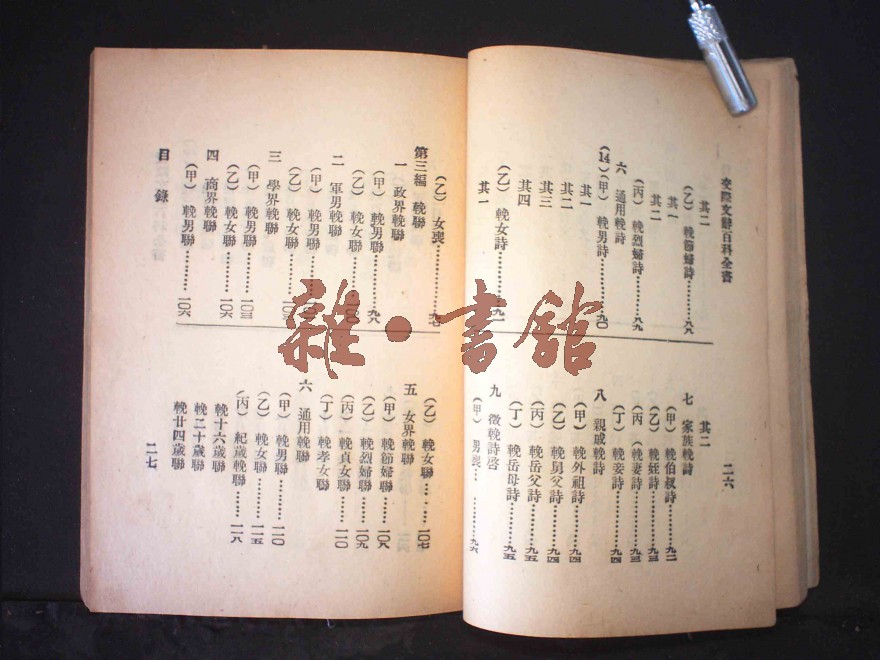 交際文辭百科全書
其二
(乙) 輓節婦詩………八八
其一
其二
(丙) 輓烈婦詩………八九
六 通用輓詩
(14)(甲) 輓男詩………九〇
其一
其二
其三
其四
(乙) 輓女詩………九一
其一
其二
七 家族輓詩
(甲) 輓伯叔詩………九二
(乙) 輓姪詩………九三
(丙) 輓妻詩………九三
(丁) 輓妾詩………九四
八 親戚輓詩
(甲) 輓外祖詩………九四
(乙) 輓舅父詩………九四
(丙) 輓岳父詩………九五
(丁) 輓岳母詩………九五
九 徵輓詩啓
(甲) 男喪………九六
二六
(乙) 女喪………九七
第三編 輓聯
一 政界輓聯
(甲) 輓男聯………九八
(乙) 輓女聯………一〇〇
二 軍界輓聯
(甲) 輓男聯………一〇
(乙) 輓女聯………一〇三
三 學界輓聯
(甲) 輓男聯………一〇三
(乙) 輓女聯………一〇六
四 商界輓聯
(甲) 輓男聯………一〇六
目錄
(乙) 輓女聯………一〇七
五 女界輓聯
(甲) 輓節婦聯………一〇八
(乙) 輓烈婦聯………一〇九
(丙) 輓貞女聯………一一〇
(丁) 輓孝女聯
六 通用輓聯
(甲) 輓男聯………一一〇
(乙) 輓女聯………一一五
(丙) 紀歲輓聯………一一八
輓十六歲聯
輓二十歲聯
輓廿四歲聯
二七
雜·書館